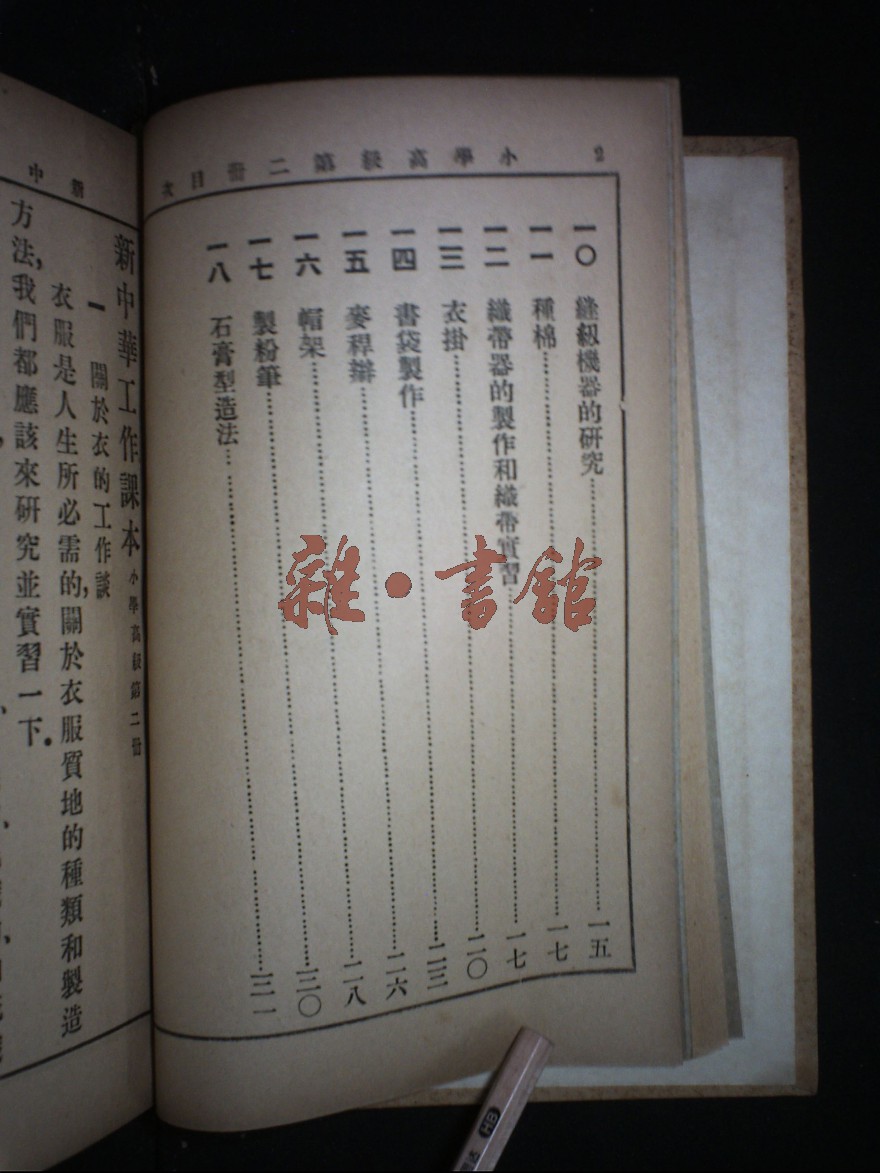 2 小學高級第二冊目次
一〇 縫級機器的研究……一五
一一 種棉……一七
一二 織帶器的製作和織帶實習……一七
一三 衣掛……二〇
一四 書袋製作……二三
一五 麥稈辮……二六
一六 帽架……二八
一七 製粉筆……三〇
一八 石膏型造法……三一
新中
新中華工作課本 小學高級第二冊
一 關於衣的工作談
衣服是人生所必需的,關於衣服質地的種類和製造
方法,我們都應該來研究並實習一下。
雜·書館
HB